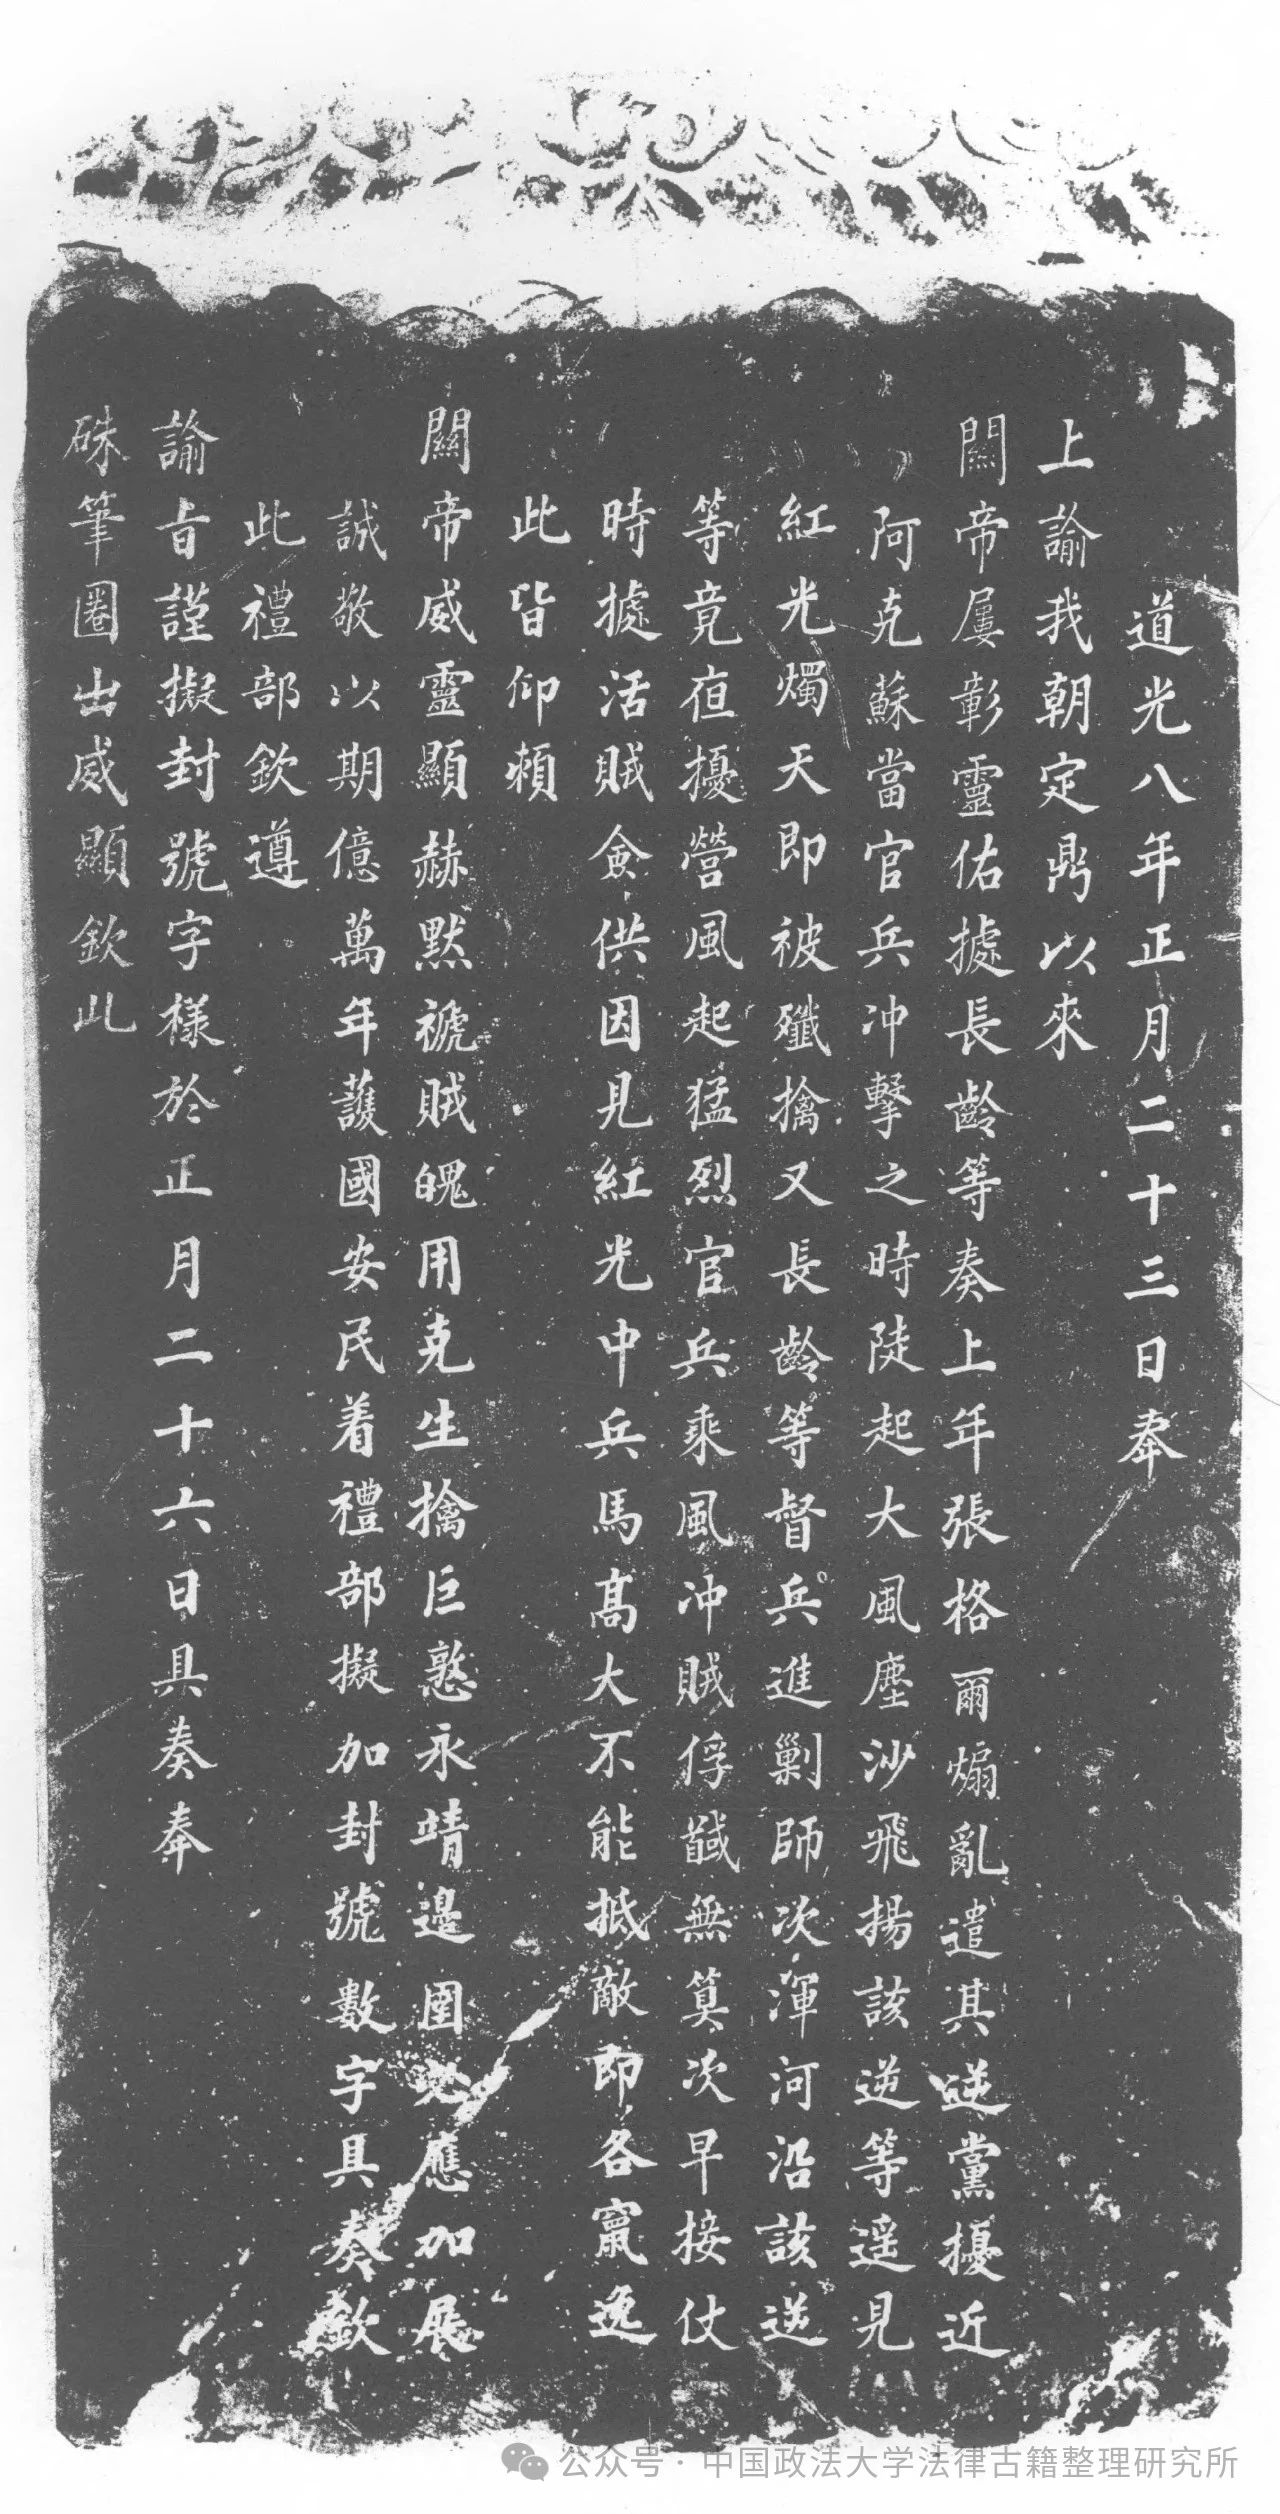 道光八年正月二十三日奉
上諭我朝定鼎以來
關帝屢彰靈佑據長齡等奏上年張格爾煽亂遣其逆黨擾近
阿克蘇當官兵冲擊之時陡起大風塵沙飛揚該逆等遥見
紅光燭天即被殲擒又長齡等督兵進剿師次渾河沿該逆
等竟夜擾營風起猛烈官兵乘風冲賊俘馘無算次早接仗
時據活賊僉供因見紅光中兵馬高大不能抵敵即各竄逸
此皆仰賴
關帝威靈顯赫默褫賊魄用克生擒巨憝永靖邊圉必應加展
誠敬以期億萬年護國安民着禮部擬加封號數字具奏欽
此禮部欽遵
諭旨謹擬封號字樣於正月二十六日具奏奉
硃筆圈出威顯欽此
公众号·中国政法大学法律古籍整理研究所